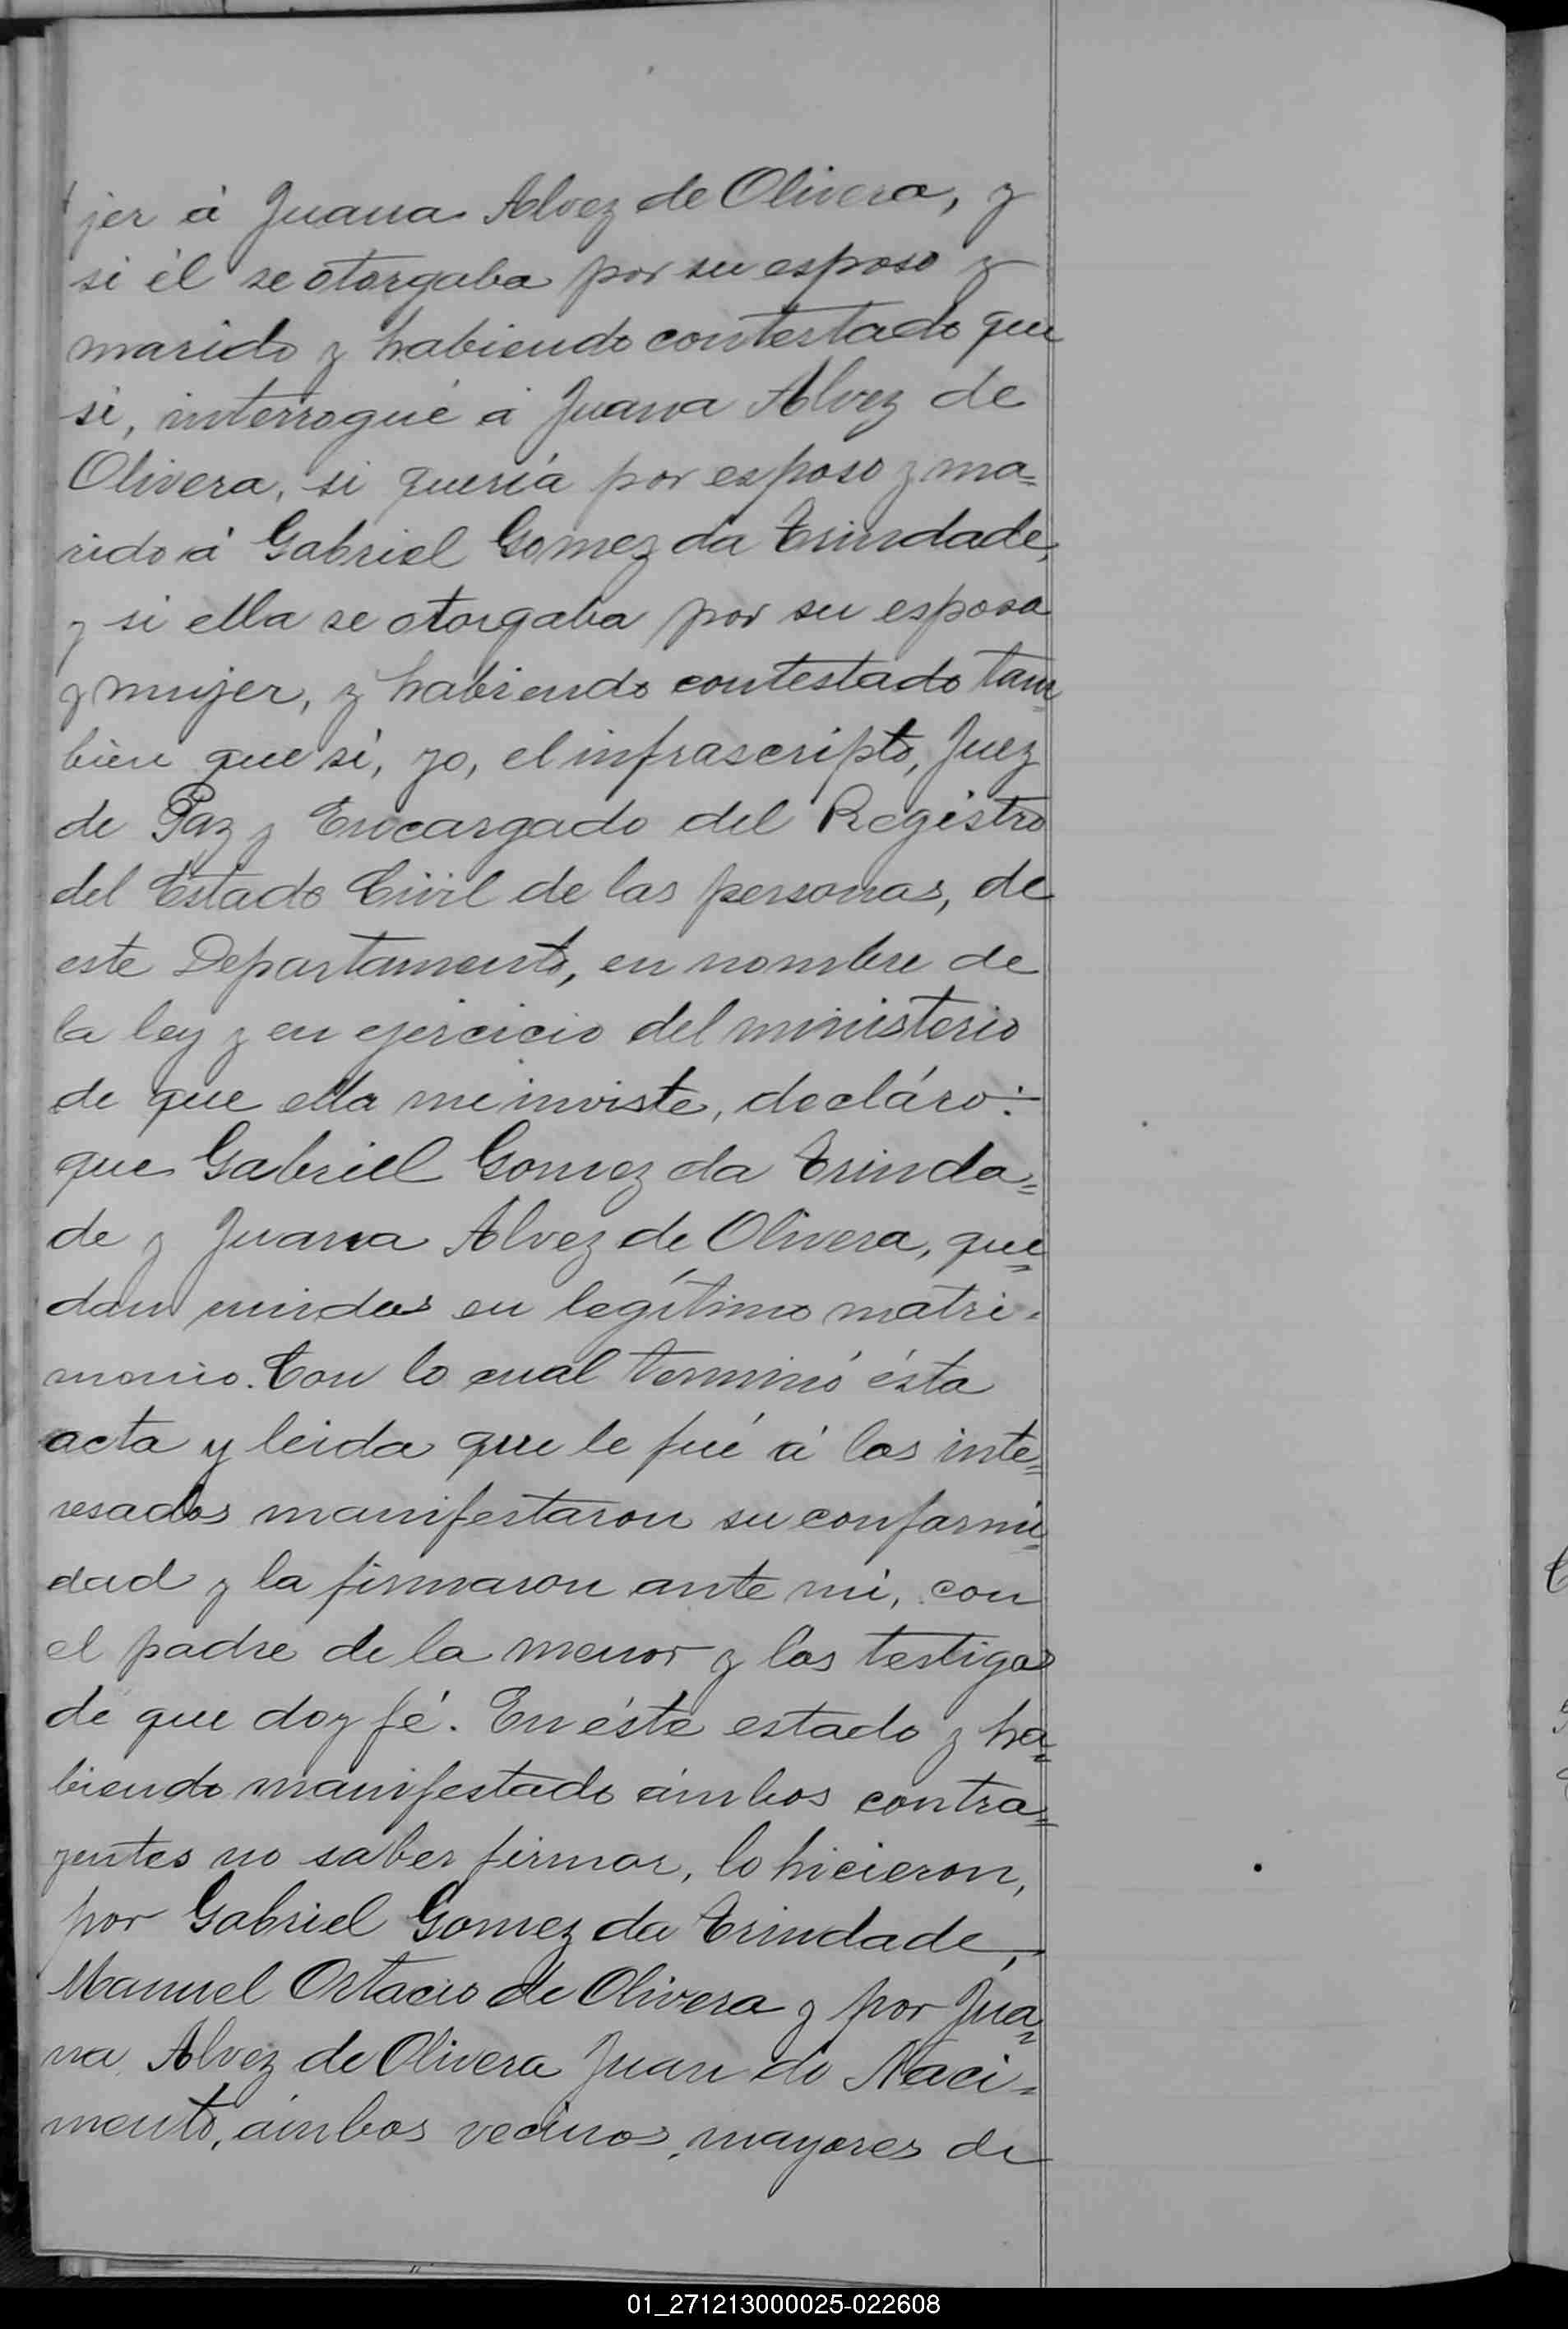 jer á Juana Alvez de Olivera, y
si él se otorgaba por su esposo y
marido y habiendo contestado que
sí, interrogué á Juana Alvez de
Olivera, si quería por esposo y ma=
rido á Gabriel Gomez da Trindade,
y si ella se otorgaba por su esposa
y mujer, y habiendo contestado tam=
bien que sí, yo, el infrascripto, Juez
de Paz y Encargado del Registro
del Estado Civil de las personas, de
este Departamento, en nombre de
la ley y en ejercicio del ministerio
de que ella me inviste, decláro:-
que Gabriel Gomez da Trinda=
de y Juana Alvez de Olivera, que=
dan unidos en legítimo matri-
monio. Con lo cual terminó ésta
acta y leida que le fué á los inte=
resados manifestaron su conformi=
dad y la firmaron ante mí, con
el padre de la menor y los testigos
de que doy fé. En éste estado y ha=
biendo manifestado ámbos contra=
yentes no saber firmar, lo hicieron,
por Gabriel Gomez da Trindade,
Manuel Ortacio de Olivera y por Jua=
na Alvez de Olivera Juan do Naci=
mento, ámbos vecinos, mayores de
01_271213000025-022608